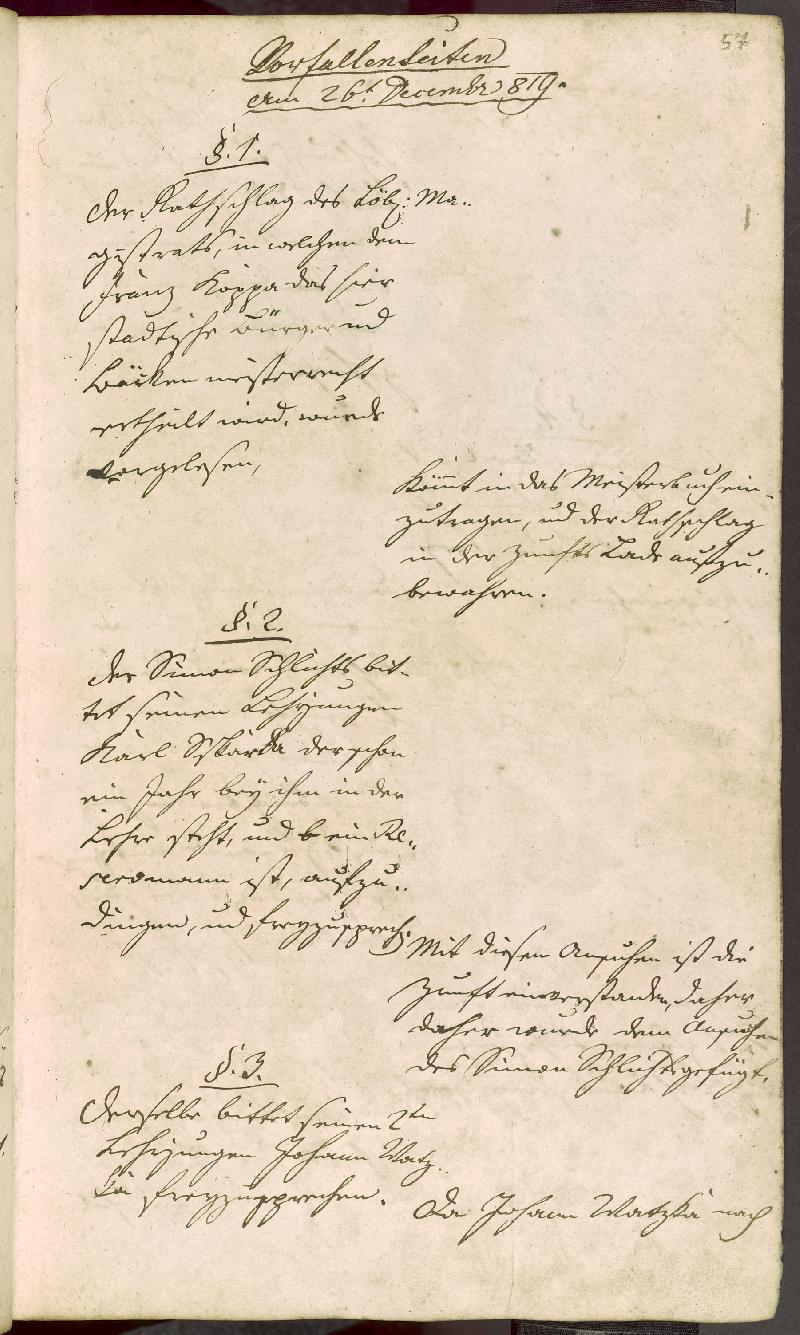 57
Vorfallenheiten
am 26t Decembr 819.
§. 1.
Der Rathschlag des Löb: Ma„
gistrats, in welchen dem
Franz Koppa das hier
stadtische Bürger und
Bäcken meisterrecht
ertheilt wird, wurde
vorgelesen,
Kömt in das Meisterbuch ein-
zutragen, und der Rathschlag
in der Zunfts Lade aufzu„
bewahren.
§. 2.
der Simon Schlichts bit-
tet seinen Lehrjungen
Karl Skarka der schon
ein Jahr bey ihm in der
Lehre steht, und ein Re„
ist, aufzu„
dingen, und freyzusprech:
Mit diesen Ansuchen ist die
Zunft einverstanden, daher
daher wurde dem Ansuchen
des Simon Schlichts gefügt.
§. 3.
Derselbe bittet seinen 2ten
Lehrjungen Johann Watz„
ka freyzusprechen.
Da Johann Watzka nach